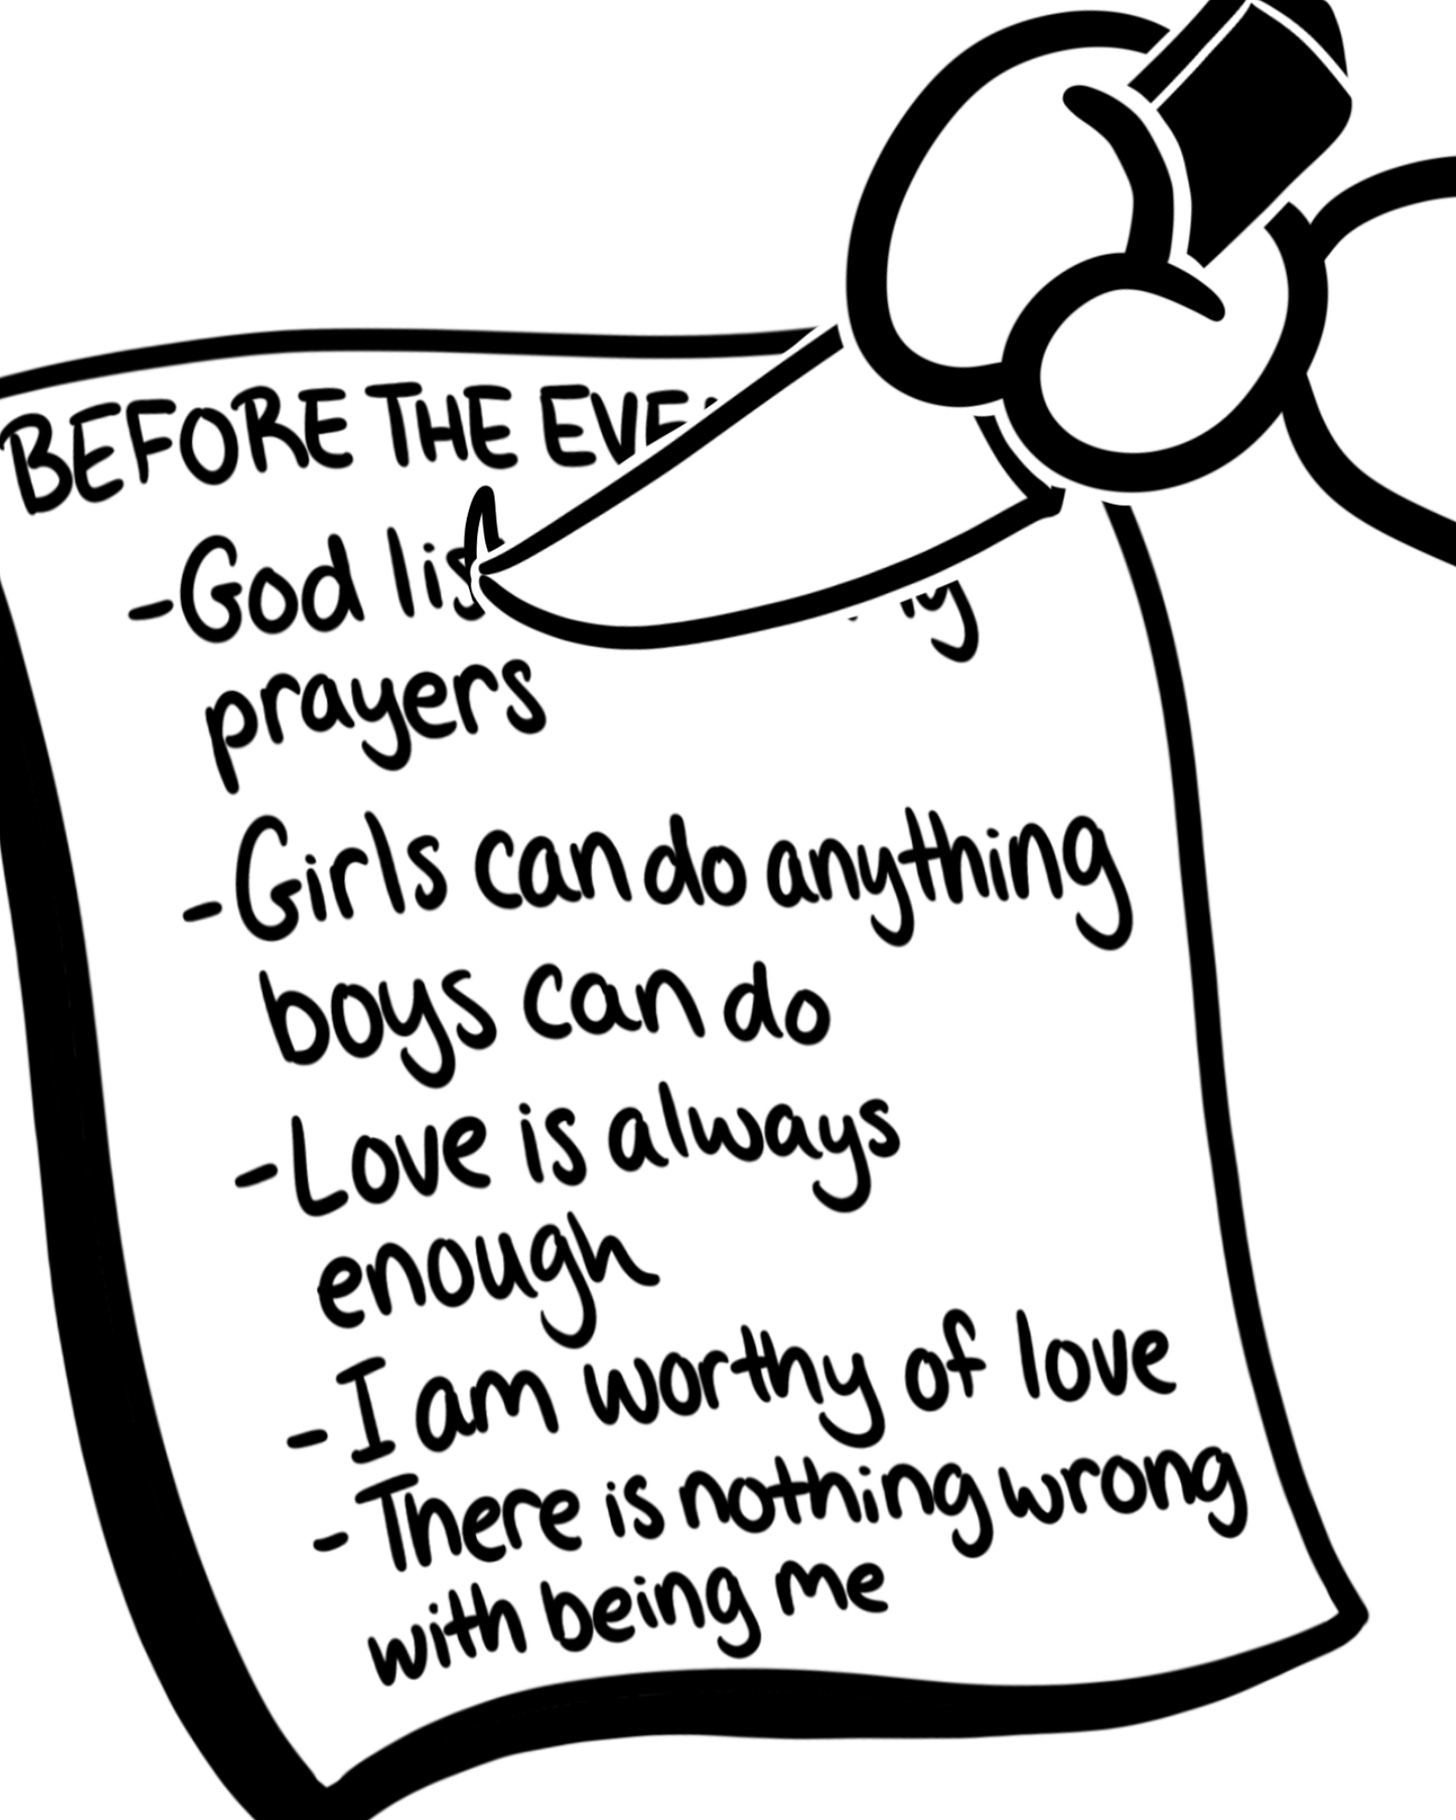 BEFORE THE
-God
prayers
-Girls can do anything
boys can do
-Love is always
enough
-I am worthy of love
-There is nothing wrong
with being me